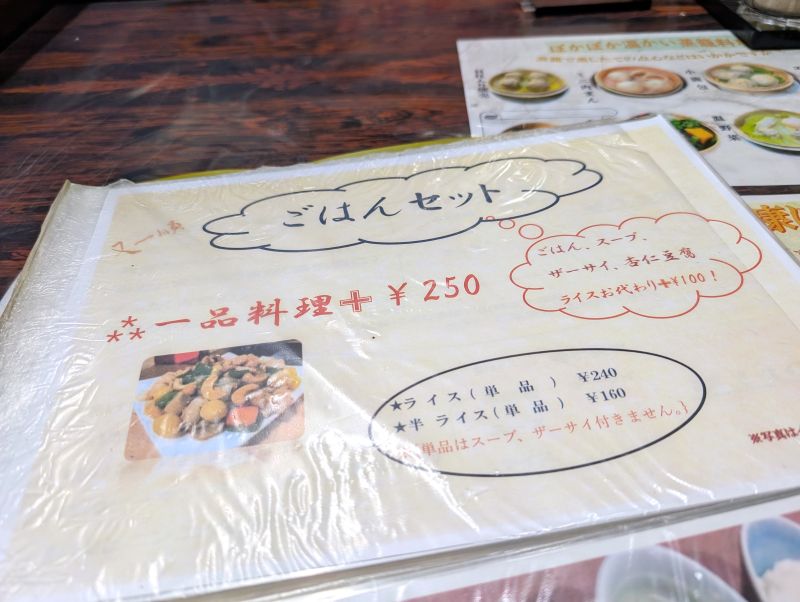 ぽかぽか温かい蒸籠料
小籠包
温野菜
ごはんセット
又一順
ごはん、スープ、
ザーサイ、杏仁豆腐
ライスお代わり+¥100！
⁂一品料理+¥250
★ライス(単 品) ¥240
★半 ライス(単 品) ¥160
単品はスープ、ザーサイ付きません。}
※写真は